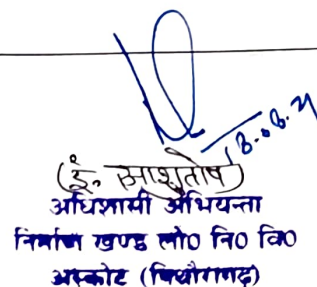 18.08.21
(इं. आशुतोष)
अधिशासी अभियन्ता
निर्माण खण्ड लो० नि० वि०
अस्कोट (पिथौरागढ़)